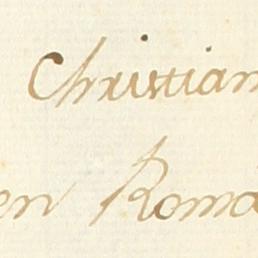 Christian
en Roma